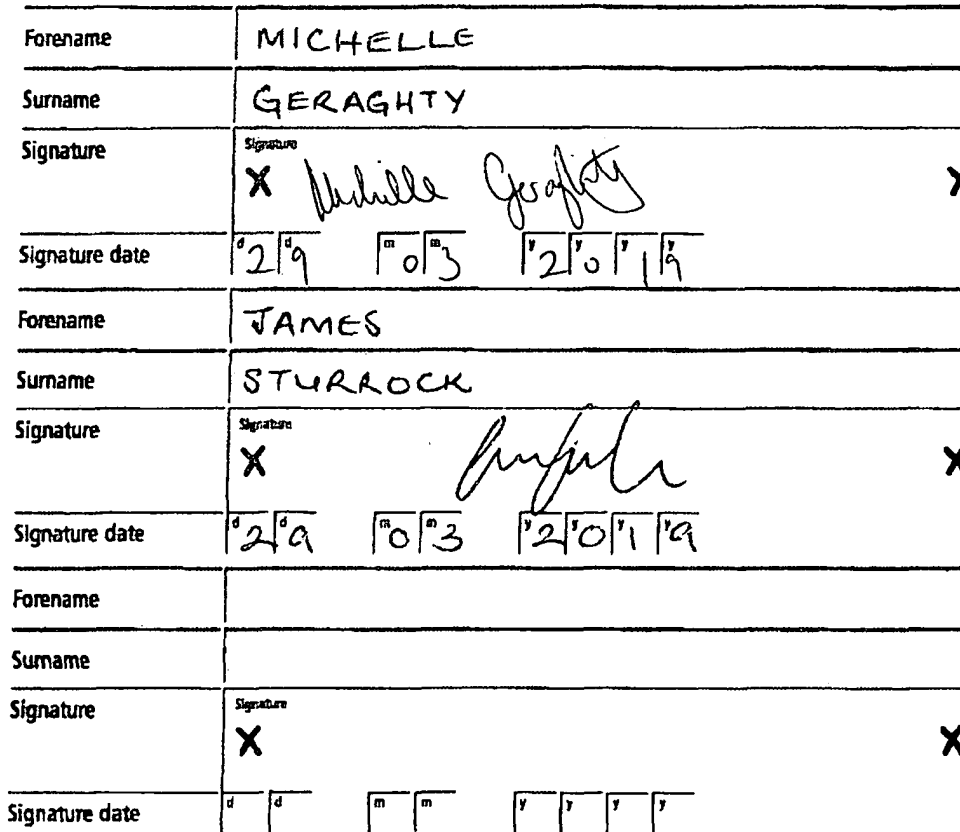 Forename MICHELLE
Surname GERAGHTY
Signature Signature
X Michelle Geraghty X
Signature date d2 d9 m0 m3 y2 y0 y1 y9
Forename JAMES
Surname STURROCK
Signature Signature
X X
Signature date d2 d9 m0 m3 y2 y0 y1 y9
Forename
Surname
Signature Signature
X X
Signature date d d m m y y y y